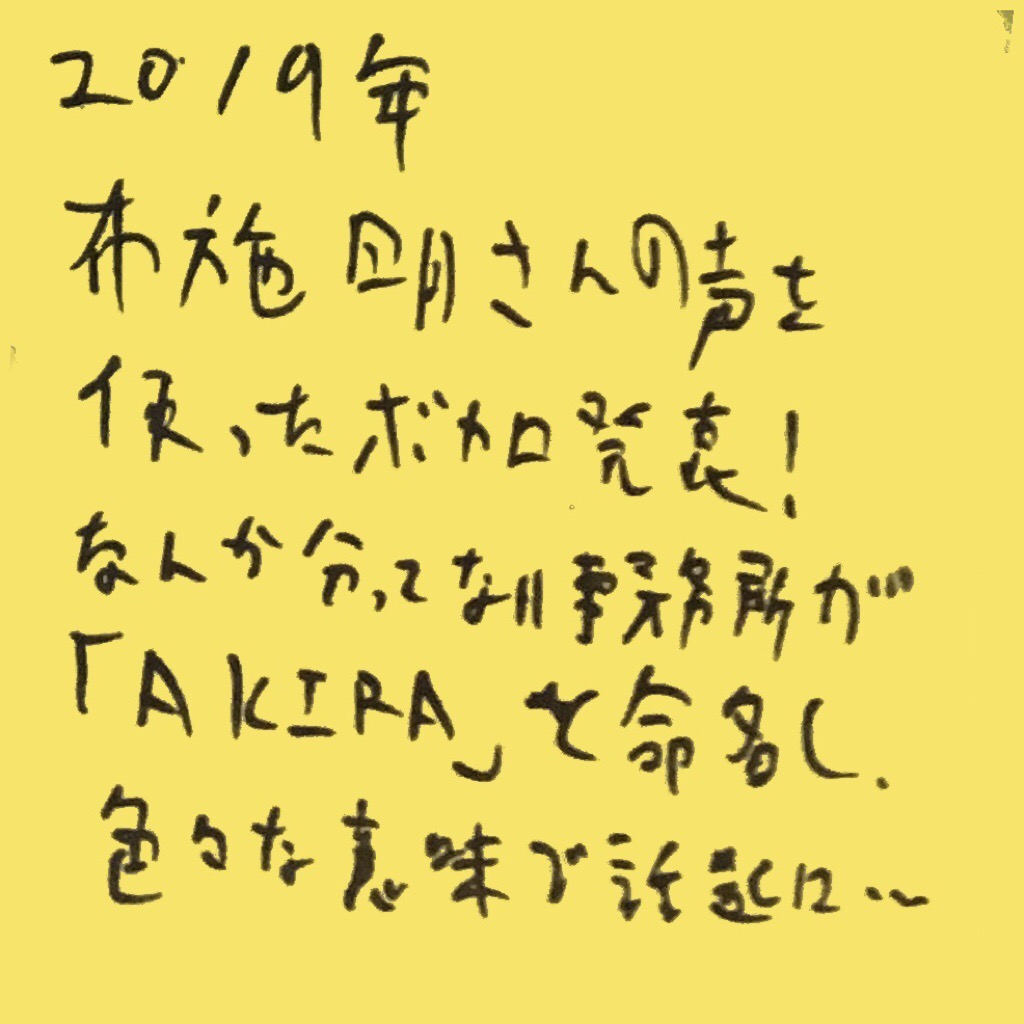 2019年
布施明さんの声を
使ったボカロ発表!
なんか分ってない事務所が
「AKIRA」と命名し、
色々な意味で話題に…